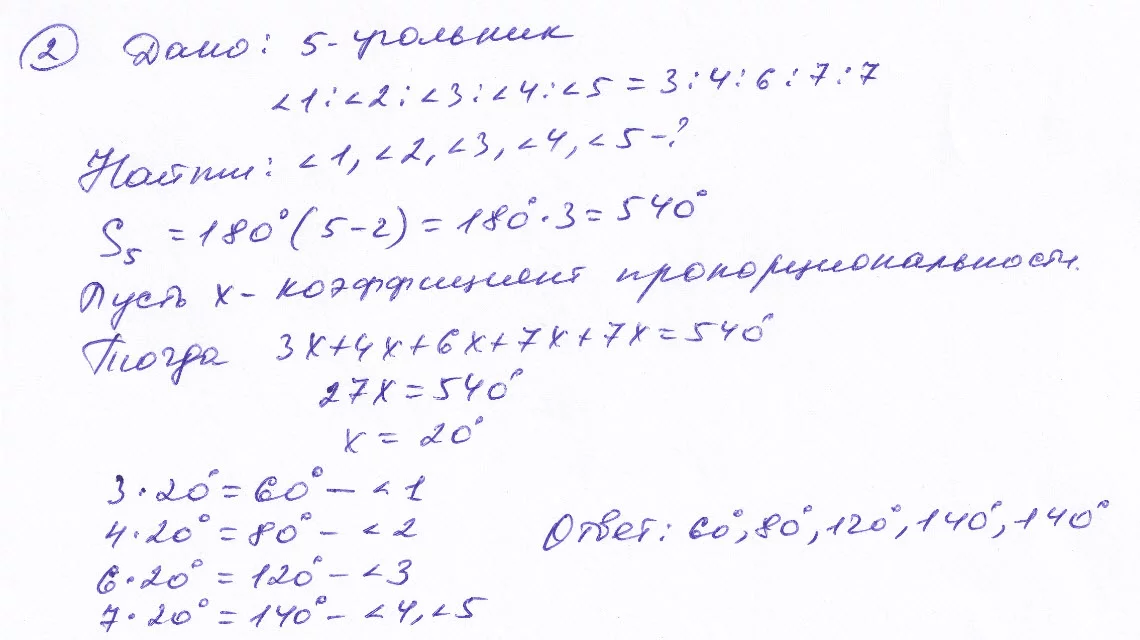 2 Дано: 5-угольник
<1:<2:<3:<4:<5=3:4:6:7:7
Найти: <1, <2, <3, <4, <5-?
S₅ = 180°(5-2) = 180°·3 = 540°
Пусть x - коэффициент пропорциональности.
Тогда 3x+4x+6x+7x+7x=540°
27x=540°
x = 20°
3·20°=60° - <1
4·20°=80° - <2
6·20°=120° - <3
7·20°=140° - <4, <5
Ответ: 60°, 80°, 120°, 140°, 140°